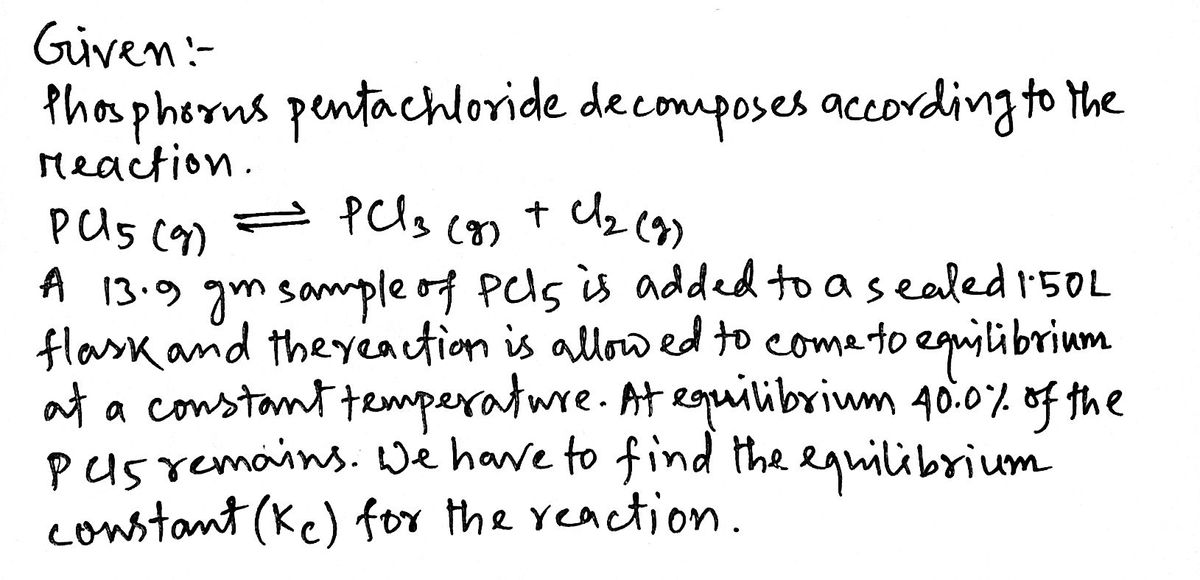 Given:-
Phosphorus pentachloride decomposes according to the
reaction.
PCl5 (g) ⇌ PCl3 (g) + Cl2 (g)
A 13.9 gm sample of PCl5 is added to a sealed 1.50L
flask and the reaction is allowed to come to equilibrium
at a constant temperature. At equilibrium 40.0% of the
PCl5 remains. We have to find the equilibrium
constant (Kc) for the reaction.